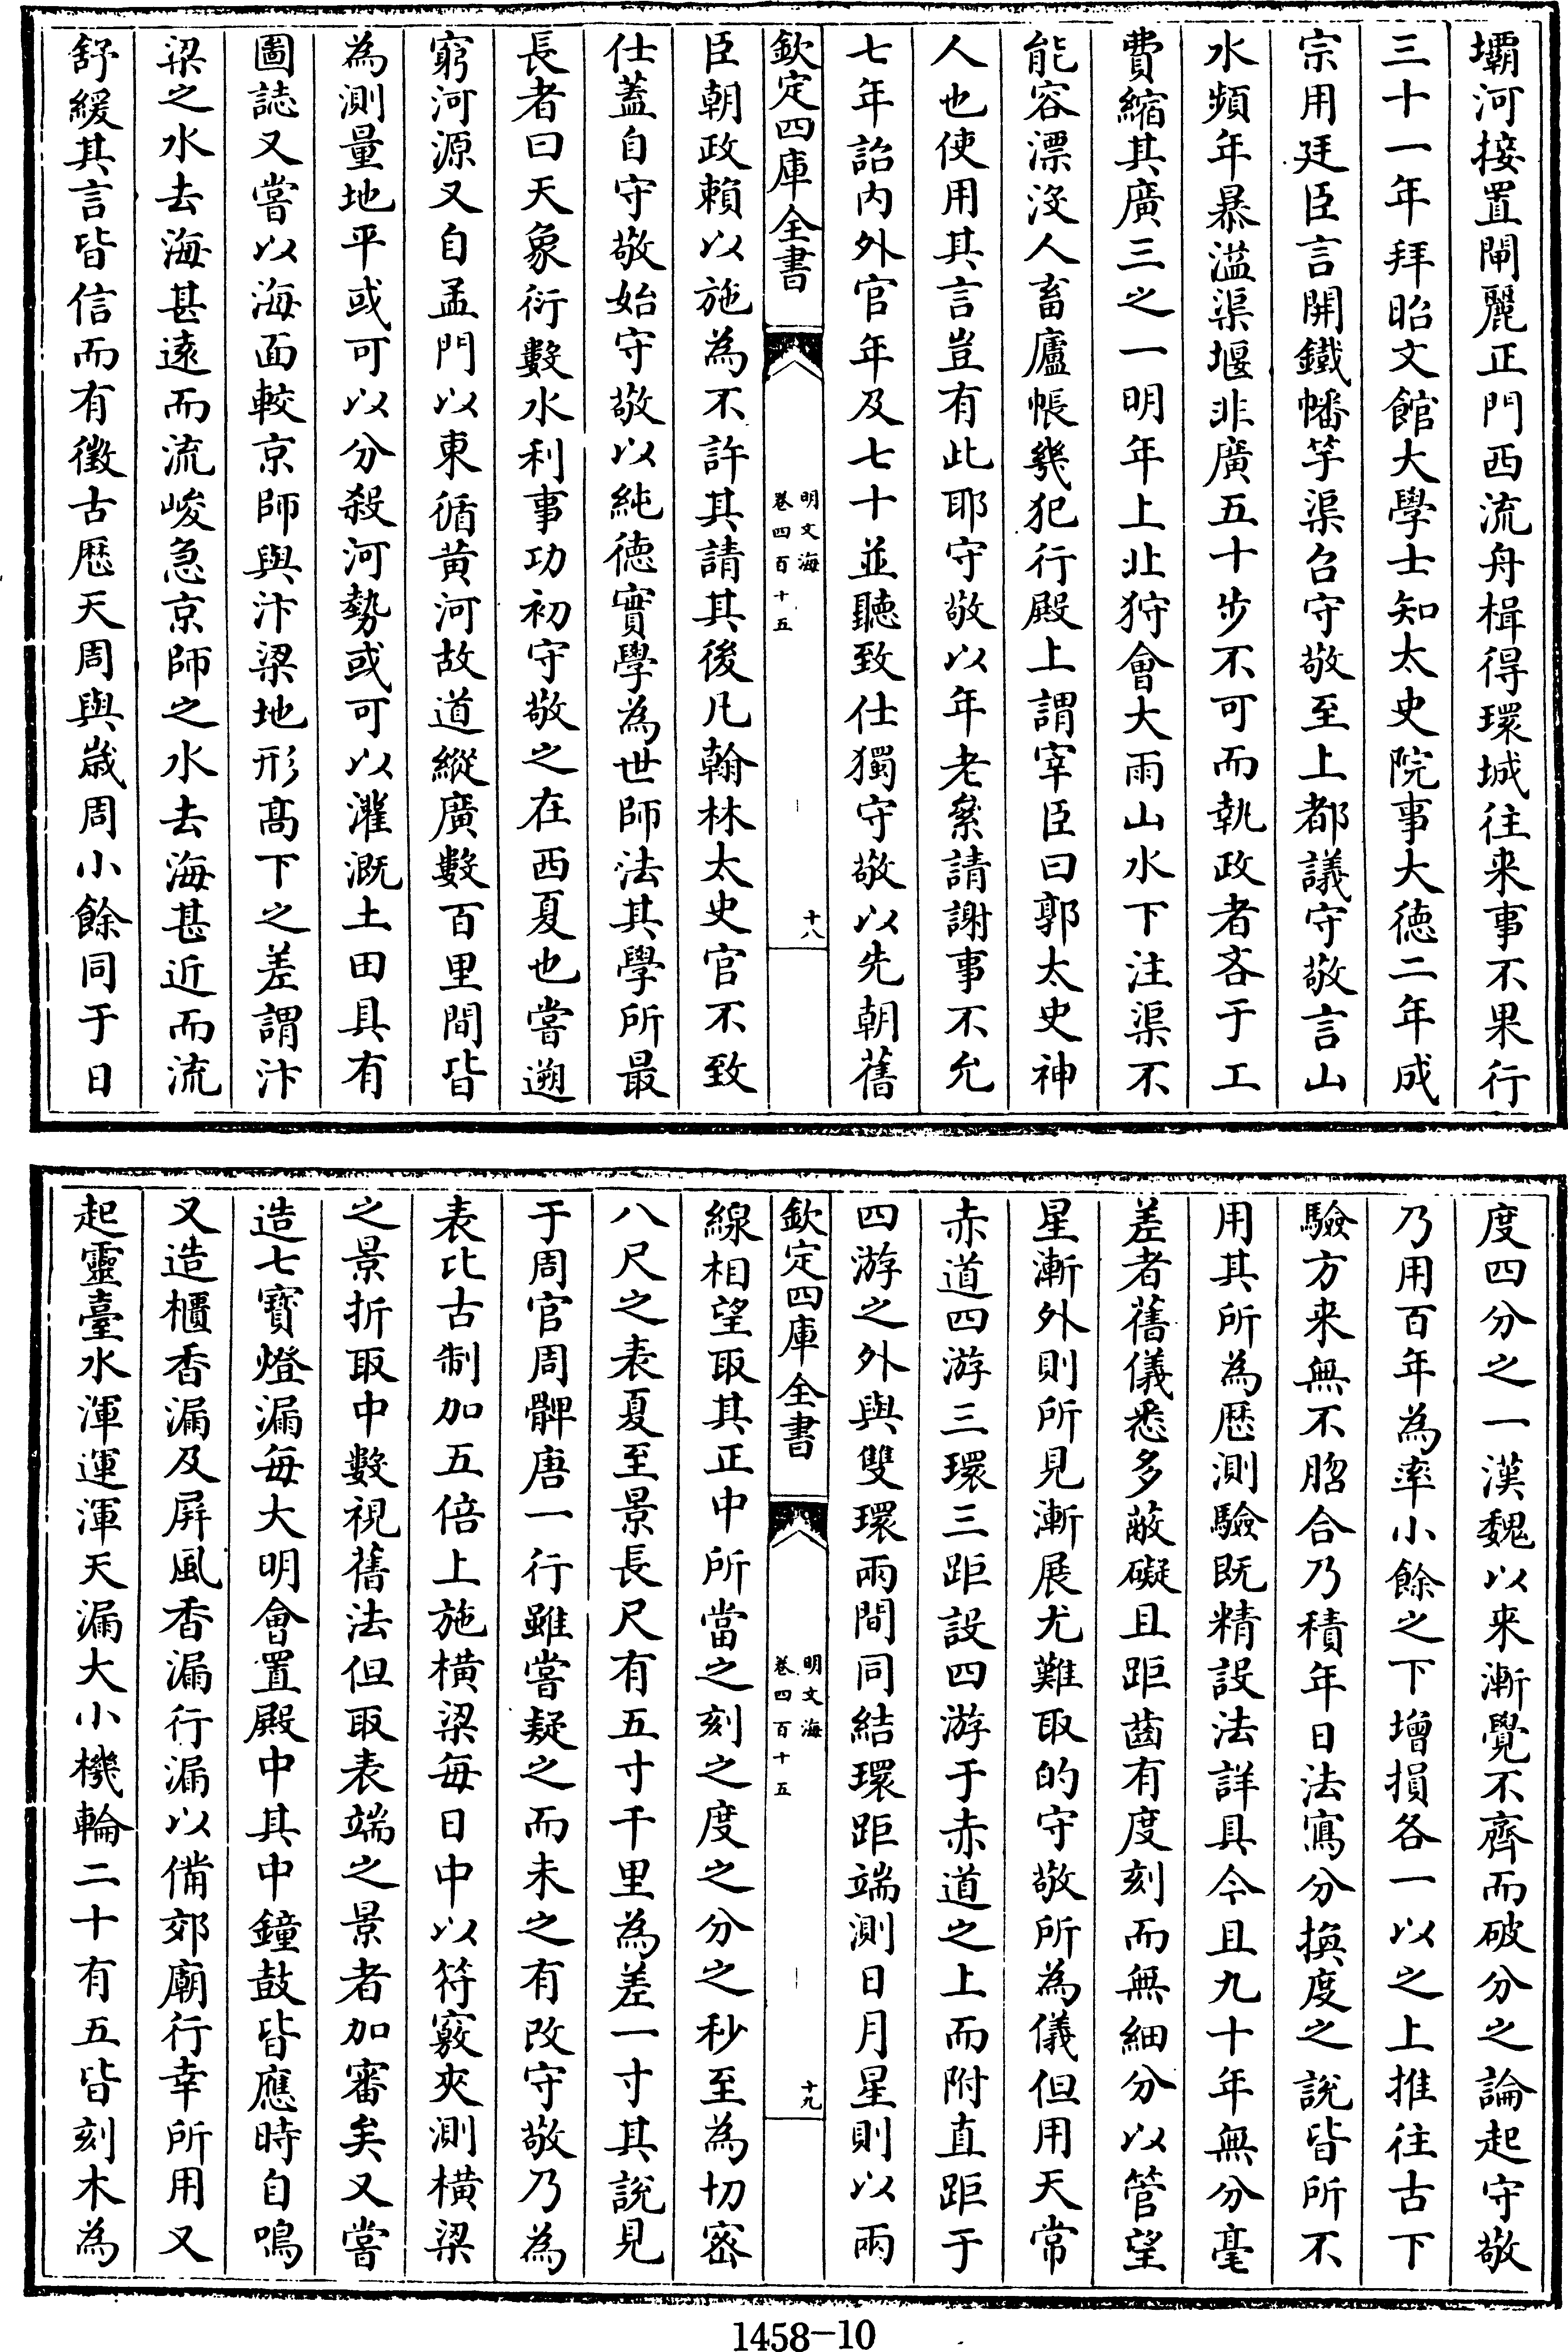 壩河接置閘麗正門西流舟楫得環城往来事不果行
三十一年拜昭文館大學士知太史院事大徳二年成
宗用廷臣言開鐵幡竿渠召守敬至上都議守敬言山
水頻年暴溢渠堰非廣五十步不可而執政者吝于工
費縮其廣三之一明年上北狩會大雨山水下注渠不
能容漂沒人畜廬帳幾犯行殿上謂宰臣曰郭太史神
人也使用其言豈有此耶守敬以年老絫請謝事不允
七年詔内外官年及七十並聽致仕獨守敬以先朝舊
欽定四庫全書
明文海
卷四百十五
十八
臣朝政賴以施為不許其請其後凡翰林太史官不致
仕蓋自守敬始守敬以純徳實學為世師法其學所最
長者曰天象衍數水利事功初守敬之在西夏也嘗遡
窮河源又自孟門以東循黄河故道縱廣數百里間皆
為測量地平或可以分殺河勢或可以灌溉土田具有
圖誌又嘗以海面較京師與汴梁地形髙下之差謂汴
梁之水去海甚逺而流峻急京師之水去海甚近而流
舒緩其言皆信而有徴古厯天周與嵗周小餘同于日
度四分之一漢魏以来漸覺不齊而破分之論起守敬
乃用百年為率小餘之下增損各一以之上推往古下
驗方来無不脗合乃積年日法寫分換度之說皆所不
用其所為厯測驗既精設法詳具今且九十年無分毫
差者舊儀悉多蔽礙且距齒有度刻而無細分以管望
星漸外則所見漸展尤難取的守敬所為儀但用天常
赤道四游三環三距設四游于赤道之上而附直距于
四游之外與雙環兩間同結環距端測日月星則以兩
欽定四庫全書
明文海
卷四百十五
十九
線相望取其正中所當之刻之度之分之秒至為切宻
八尺之表夏至景長尺有五寸千里為差一寸其說見
于周官周髀唐一行雖嘗疑之而未之有改守敬乃為
表比古制加五倍上施横梁毎日中以符竅夾測横梁
之景折取中數視舊法但取表端之景者加審矣又嘗
造七寳燈漏毎大明會置殿中其中鐘鼓皆應時自鳴
又造櫃香漏及屏風香漏行漏以備郊廟行幸所用又
起靈臺水渾運渾天漏大小機輪二十有五皆刻木為
1458-10